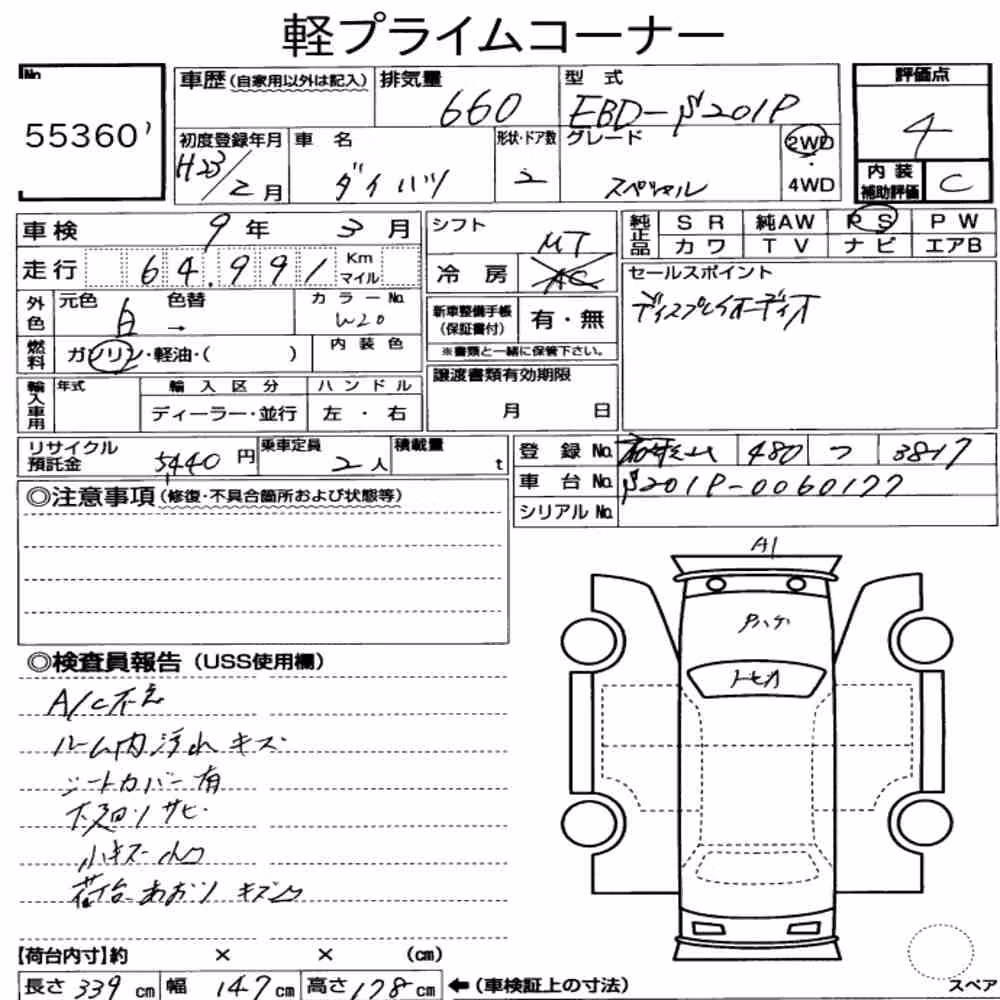 軽プライムコーナー
No.
55360
車歴（自家用以外は記入）
排気量
660
型 式
EBD-S201P
評価点
4
内装
補助評価
C
初度登録年月
H23/2月
車 名
ダイハツ
形状・ドア数
2
グレード
スペシャル
2WD
・
4WD
車検 9年 3月
走行 64,991 Km
マイル
シフト
MT
冷房 AC
純正品
S R 純AW P S P W
カ ワ T V ナ ビ エアB
セールスポイント
ディスプレイオーディオ
外色
元色 白 色替 →
カラーNo.
W20
新車整備手帳
（保証書付）
有・無
※書類と一緒に保管下さい。
燃料
ガソリン・軽油・（ ）
内 装 色
輸入車用
年式
輸 入 区 分
ディーラー・並行
ハ ン ド ル
左 ・ 右
譲渡書類有効期限
月 日
リサイクル
預託金
5440円
乗車定員
2人
積載量
t
登 録 No. 480 つ 3817
車 台 No. S201P-0060177
シリアルNo.
◎注意事項（修復・不具合箇所および状態等）
A1
Pハゲ
トビ石
◎検査員報告（USS使用欄）
A/C不良
ルーム内汚れ キズ
シートカバー有
下廻りサビ
小キズ 凹
荷台 あおり キズ凹
【荷台内寸】約 × × （cm）
長さ 339 cm 幅 147 cm 高さ 178 cm ←（車検証上の寸法）
スペア